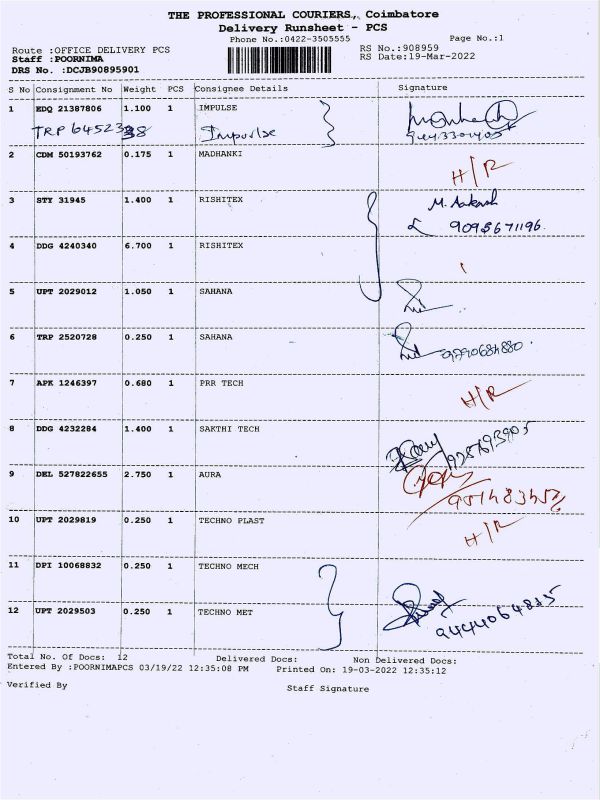 THE PROFESSIONAL COURIERS, Coimbatore
Delivery Runsheet - PCS
Phone No.:0422-3505555 Page No.:1
Route :OFFICE DELIVERY PCS RS No.:908959
Staff :POORNIMA RS Date:19-Mar-2022
DRS No. :DCJB90895901
S No Consignment No Weight PCS Consignee Details Signature
1 EDQ 21387806 1.100 1 IMPULSE
TRP 6452388 Impulse
2 CDM 50193762 0.175 1 MADHANKI H/R
3 STY 31945 1.400 1 RISHITEX M. Aakash
9095671196
4 DDG 4240340 6.700 1 RISHITEX
5 UPT 2029012 1.050 1 SAHANA
6 TRP 2520728 0.250 1 SAHANA 9790684880
7 APK 1246397 0.680 1 PRR TECH H/R
8 DDG 4232284 1.400 1 SAKTHI TECH
9 DEL 527822655 2.750 1 AURA
10 UPT 2029819 0.250 1 TECHNO PLAST H/R
11 DPI 10068832 0.250 1 TECHNO MECH
12 UPT 2029503 0.250 1 TECHNO MET 9444064815
Total No. Of Docs: 12 Delivered Docs: Non Delivered Docs:
Entered By :POORNIMAPCS 03/19/22 12:35:08 PM Printed On: 19-03-2022 12:35:12
Verified By Staff Signature